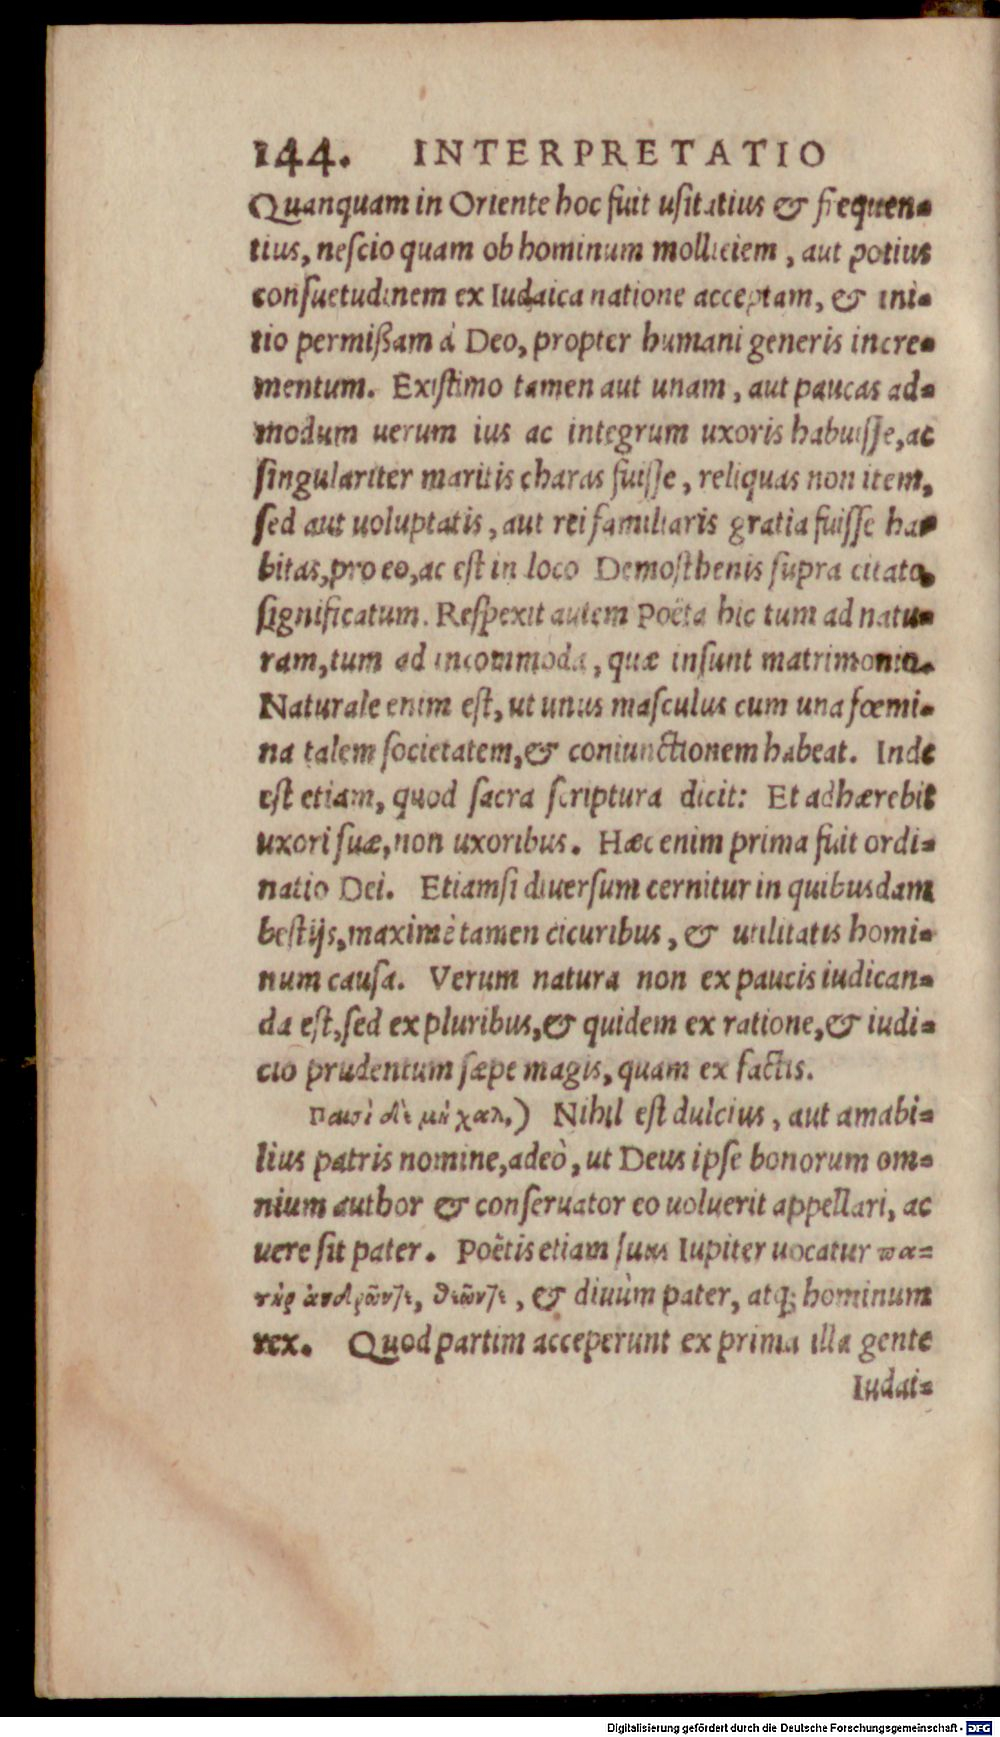 144. INTERPRETATIO
Quanquam in Oriente hoc fuit usitatius & frequen-
tius, nescio quam ob hominum molliciem, aut potius
consuetudinem ex Iudaica natione acceptam, & ini-
tio permißam à Deo, propter humani generis incre-
mentum. Existimo tamen aut unam, aut paucas ad-
modum uerum ius ac integrum uxoris habuisse, ac
singulariter maritis charas fuisse, reliquas non item,
sed aut uoluptatis, aut rei familiaris gratia fuisse ha-
bitas, pro eo, ac est in loco Demosthenis supra citato,
significatum. Respexit autem Poëta hic tum ad natu-
ram, tum ad incommoda, quæ insunt matrimonio.
Naturale enim est, ut unus masculus cum una fœmi-
na talem societatem, & coniunctionem habeat. Inde
est etiam, quod sacra scriptura dicit: Et adhærebit
uxori suæ, non uxoribus. Hæc enim prima fuit ordi-
natio Dei. Etiamsi diuersum cernitur in quibusdam
bestijs, maximè tamen cicuribus, & utilitatis homi-
num causa. Verum natura non ex paucis iudican-
da est, sed ex pluribus, & quidem ex ratione, & iudi-
cio prudentum sæpe magis, quam ex factis.
Παισὶ δὲ μὴ χαλ.) Nihil est dulcius, aut amabi-
lius patris nomine, adeò, ut Deus ipse bonorum om-
nium author & conseruator eo uoluerit appellari, ac
uere sit pater. Poëtis etiam suus Iupiter uocatur πα-
τὴρ ἀνδρῶντε, θεῶντε, & diuùm pater, atq; hominum
rex. Quod partim acceperunt ex prima illa gente
Iudai-
Digitalisierung gefördert durch die Deutsche Forschungsgemeinschaft - DFG